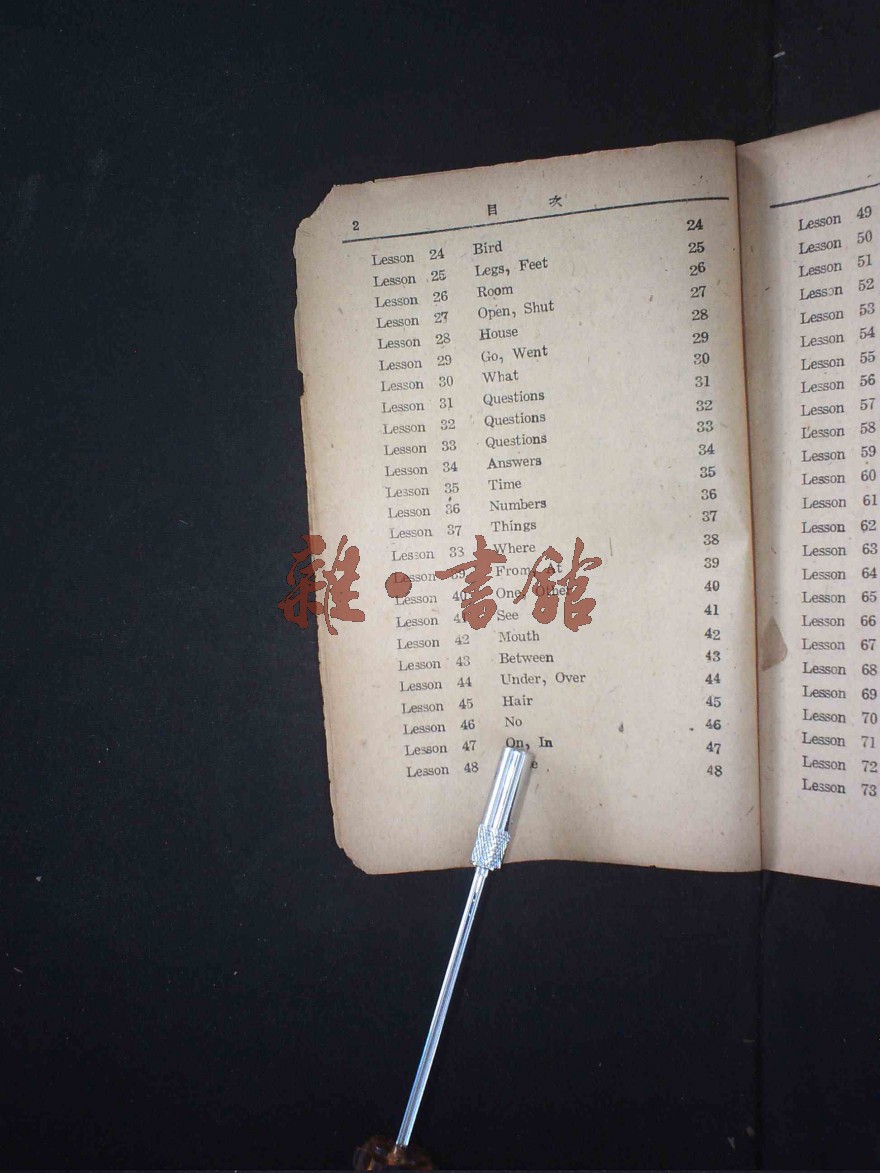 2 目 次
Lesson 24 Bird 24
Lesson 25 Legs, Feet 25
Lesson 26 Room 26
Lesson 27 Open, Shut 27
Lesson 28 House 28
Lesson 29 Go, Went 29
Lesson 30 What 30
Lesson 31 Questions 31
Lesson 32 Questions 32
Lesson 33 Questions 33
Lesson 34 Answers 34
Lesson 35 Time 35
Lesson 36 Numbers 36
Lesson 37 Things 37
Lesson 38 Where 38
Lesson 39 From, At 39
Lesson 40 One, Other 40
Lesson 41 See 41
Lesson 42 Mouth 42
Lesson 43 Between 43
Lesson 44 Under, Over 44
Lesson 45 Hair 45
Lesson 46 No 46
Lesson 47 On, In 47
Lesson 48 48
雜·書館
Lesson 49
Lesson 50
Lesson 51
Lesson 52
Lesson 53
Lesson 54
Lesson 55
Lesson 56
Lesson 57
Lesson 58
Lesson 59
Lesson 60
Lesson 61
Lesson 62
Lesson 63
Lesson 64
Lesson 65
Lesson 66
Lesson 67
Lesson 68
Lesson 69
Lesson 70
Lesson 71
Lesson 72
Lesson 73